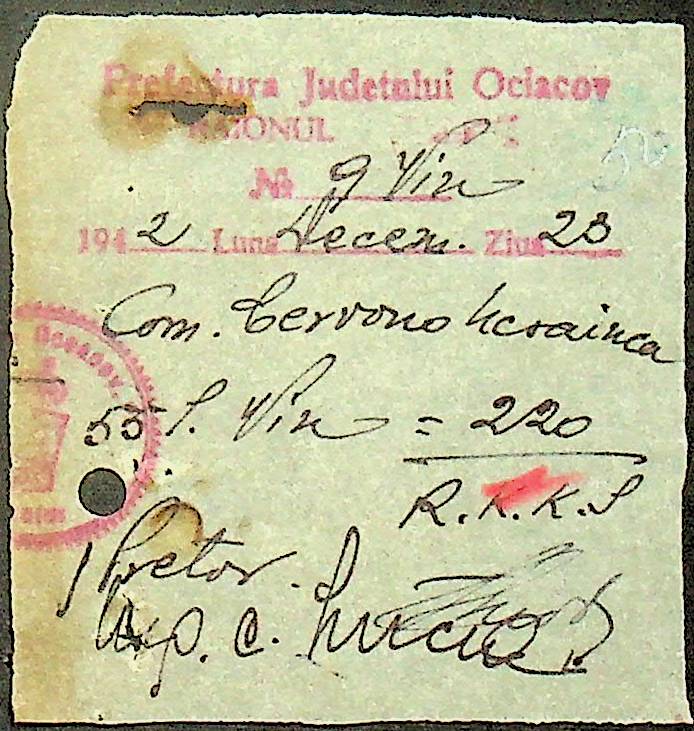 Prefectura Judetului Ociacov
RAIONUL
№ 9 Vin
1942 Luna Decem. Ziua 23
Com. Cervono Ucrainca
55 l. Vin = 220
R.K.K.S
Pretor.